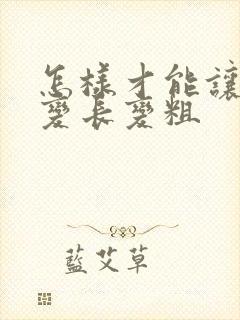 怎樣才能讓
變長變粗
藍艾草